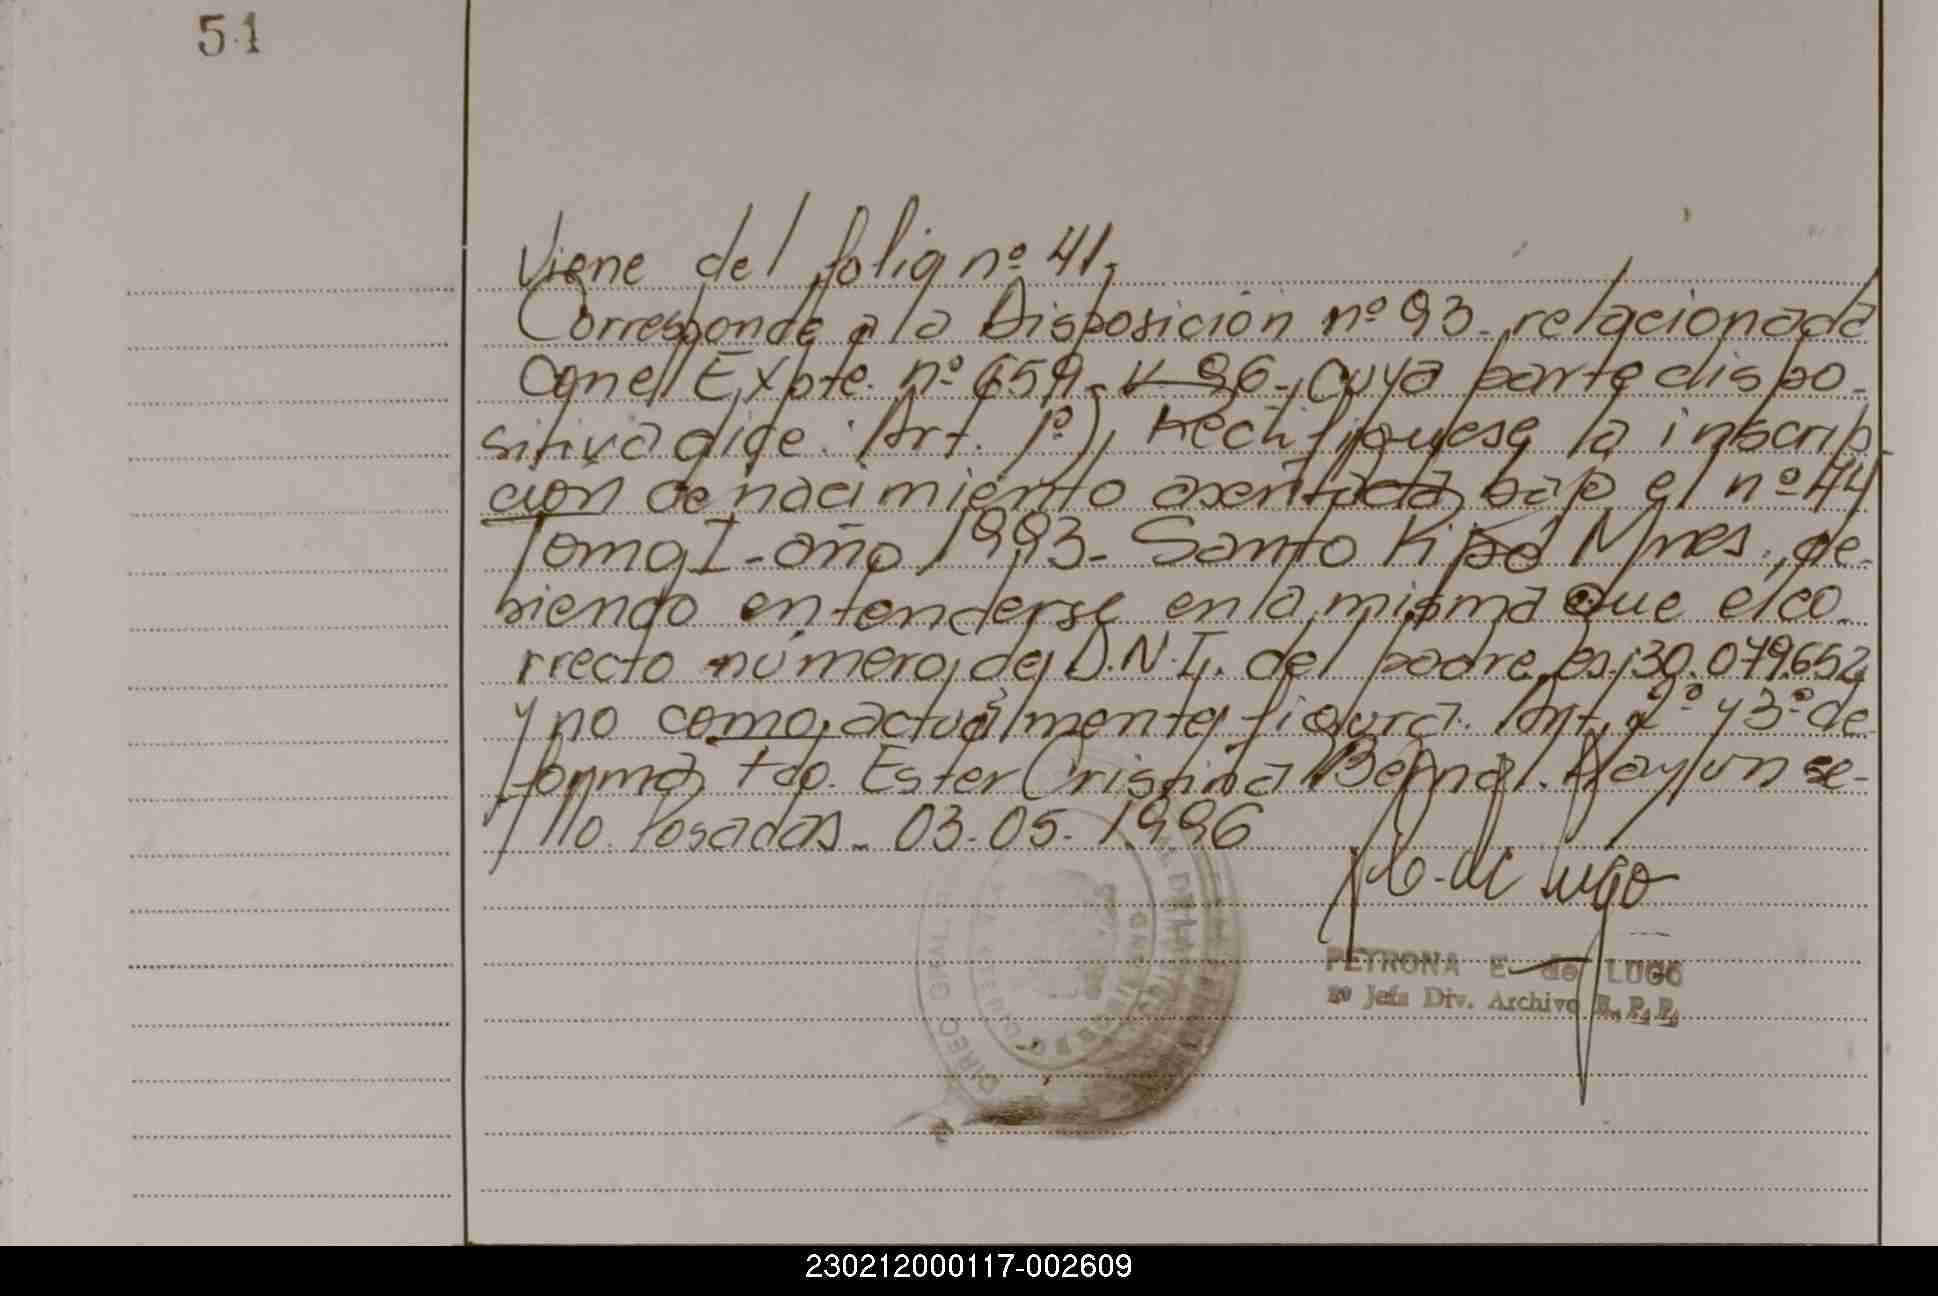 51
Viene del folio nº 41.
Corresponde a la Disposición nº 93. relacionada
con el Expte. nº 659- K-96-, cuya parte dispo-
sitiva dice: Art. 1º), Rectifiquese la inscrip
ción de nacimiento asentada bajo el nº 44
Tomo I - año 1993- Santo Pipó Mnes., de-
biendo entenderse en la misma que el co-
rrecto número de D.N.I. del padre es: 30.079.652
y no como actualmente figura. Art. 2º y 3º de
forma. Fdo. Ester Cristina Bernal. Hay un se-
llo. Posadas - 03-05-1996
Lugo
PETRONA E. de LUGO
2º Jefa Div. Archivo R. P. P.
DIREC. GRAL.
230212000117-002609